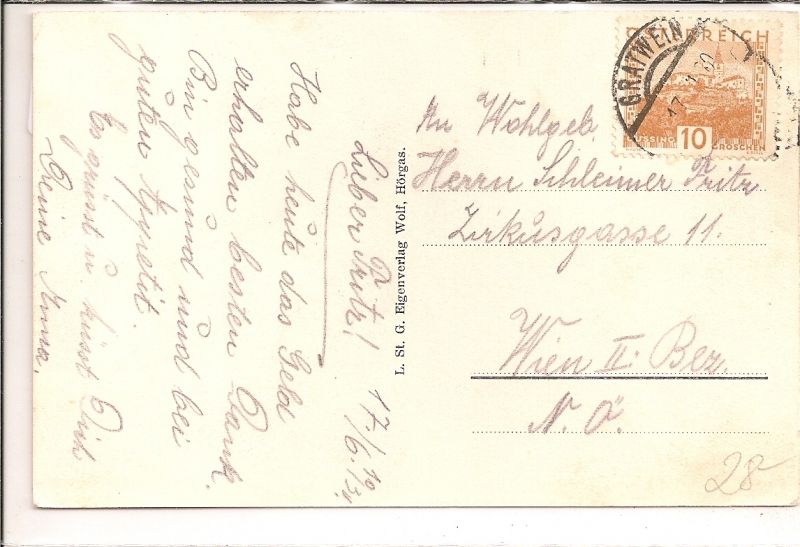 Lieber Fritz! 17/6. 31
Habe heute das Geld
erhalten besten Dank.
Bin gesund und bei
guten Apetit.
Es grüsst u. küsst Dich
Deine Anna.
L. St. G. Eigenverlag Wolf, Hörgas.
ÖSTERREICH
GRATWEIN
10
GROSCHEN
An Wohlgeb.
Herrn Schleimer Fritz
Zirkusgasse 11.
Wien II. Bez.
N. Ö.
28